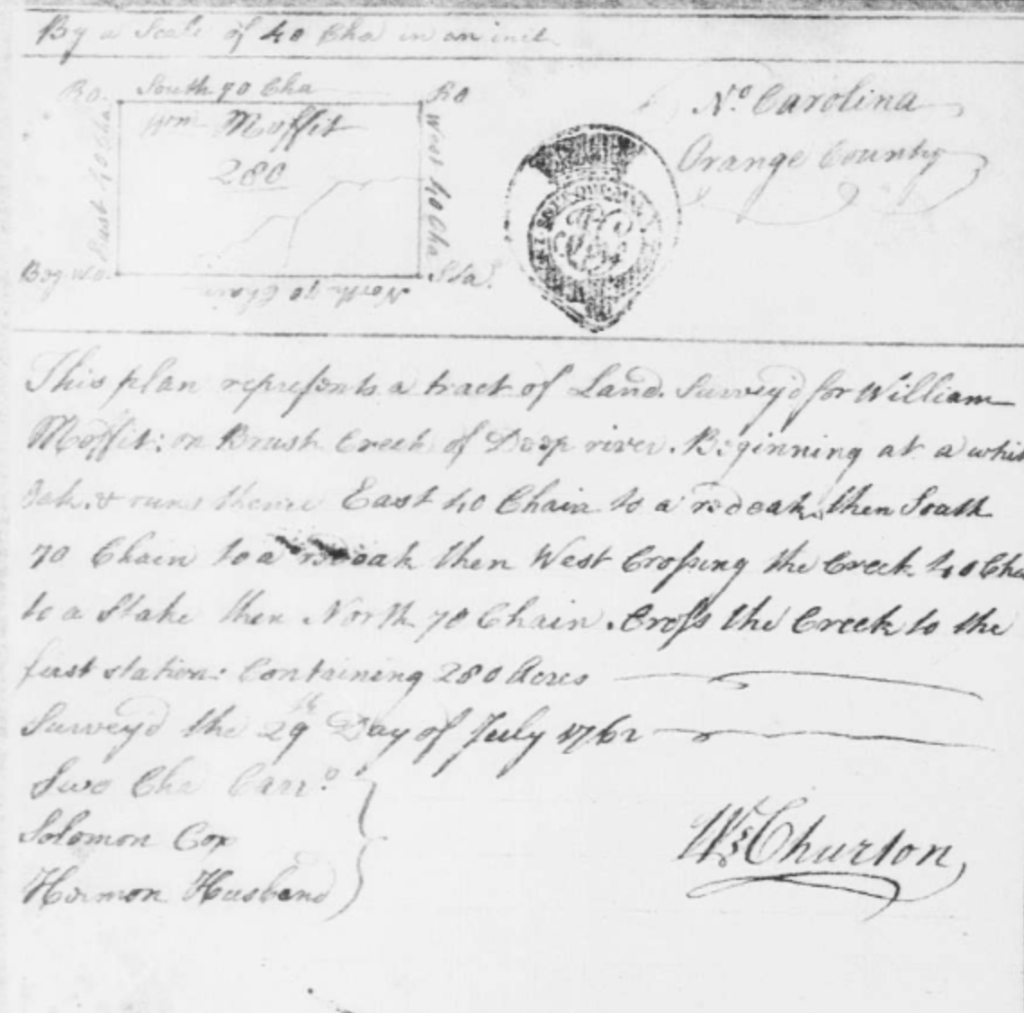 By a Scale of 40 Cha in an inch
No Carolina
Orange County
RO. South 70 Cha RO
Wm Moffit
280
East 40 Cha
West 40 Cha
Beg. WO. Sta.
North 70 Chain
This plan represents a tract of Land Survey'd for William
Moffit: on Brush Creek of Deep river. Beginning at a whit
Oak. & runs thence East 40 Chain to a red oak, then South
70 Chain to a red oak then West Crossing the Creek 40 Cha
to a Stake then North 70 Chain. Cross the Creek to the
first station: Containing 280 Acres
Survey'd the 29th Day of July 1762
Swo Cha Carrs.
Solomon Cox
Hermon Husband
Wm Churton